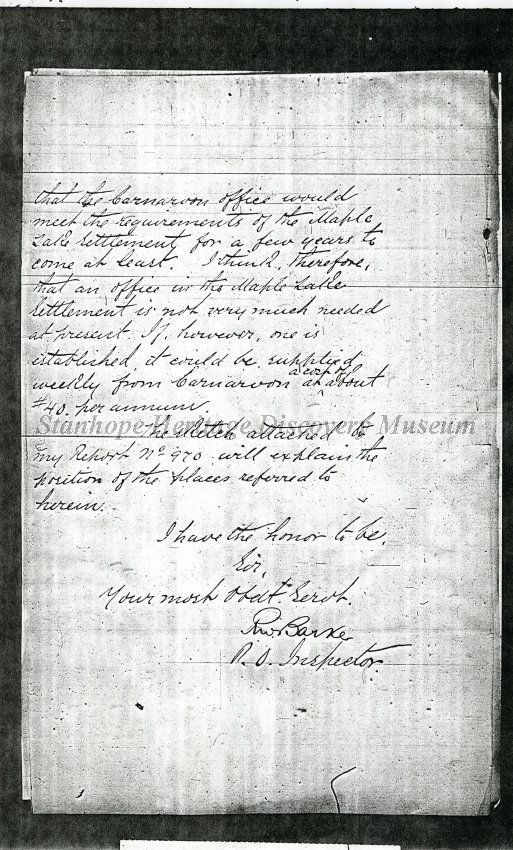 that the Carnarvon office would
meet the requirements of the Maple
Lake settlement for a few years to
come at least. I think, therefore,
that an office in the Maple Lake
settlement is not very much needed
at present. If, however, one is
established, it could be supplied
weekly from Carnarvon at a cost of about
$40. per annum.
The sketch attached to
my Report No 970 will explain the
position of the places referred to
herein.
I have the honor to be,
Sir,
Your most Obedt. Servt.
RW Barke
P. O. Inspector.
Stanhope Heritage Discovery Museum